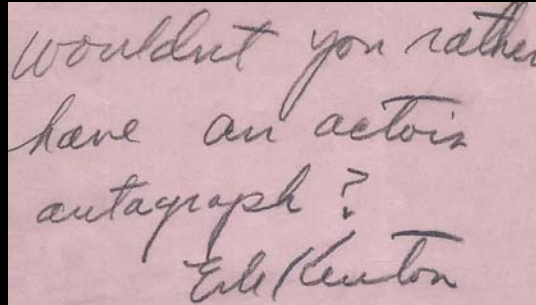 wouldnt you rather
have an actors
autagraph?
Erle Kenton